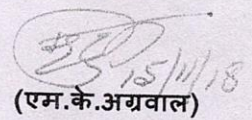 15/11/18
(एम.के.अग्रवाल)